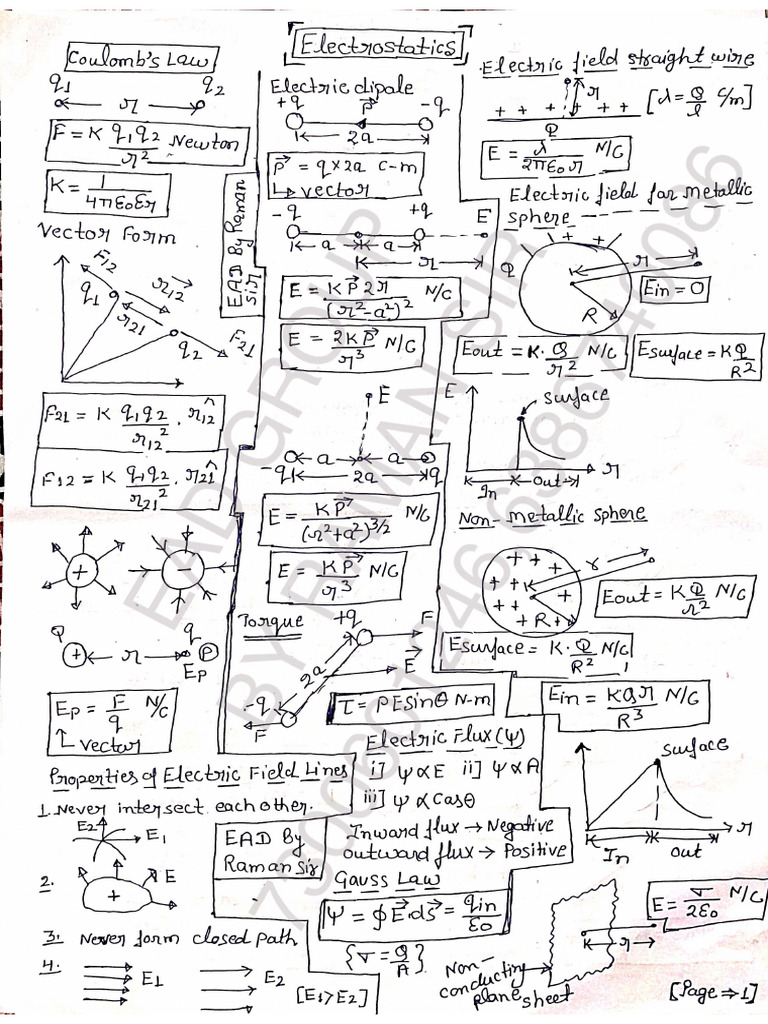 [Electrostatics]
Coulomb's Law
q1 q2
r
F = K q1q2/r² Newton
K = 1/4πε0εr
Vector Form
F12
q1
r12
r21
q2
F21
F21 = K q1q2/r12² . r̂12
F12 = K q1q2/r21² . r̂21
+ −
Q q
+ r P
Ep
Ep = F/q N/C
↳ vector
Properties of Electric Field Lines
1. Never intersect each other.
E2
E1
2.
+
E
3. Never form closed path
4.
E1 E2
[E1>E2]
EAD By Raman sir
Electric dipole
+q P⃗ -q
2a
P⃗ = q×2a c-m
↳ vector
-q +q E
a a
r
E = KP⃗2r/(r²-a²)² N/C
E = 2KP⃗/r³ N/C
E
a a
-q 2a q
E = KP⃗/(r²+a²)^3/2 N/C
E = KP⃗/r³ N/C
Torque
+q F
2a
E⃗
-q
F
τ = PEsinθ N-m
Electric Flux(ψ)
i] ψ∝E ii] ψ∝A
iii] ψ∝Cosθ
EAD By
Raman sir
Inward flux → Negative
outward flux → Positive
Gauss Law
ψ = ∮E⃗.ds⃗ = qin/ε0
{σ = Q/A}
Electric field straight wire
r
+ + + + + +
Q
[λ = Q/l C/m]
E = λ/2πε0r N/C
Electric field for metallic
sphere
Q
r
R
Ein = 0
Eout = K.Q/r² N/C
Esurface = KQ/R²
E
surface
r
In out
Non-metallic sphere
+ + + + + + + + +
r
R
Eout = KQ/r² N/C
Esurface = K.Q/R² N/C
Ein = KQr/R³ N/C
surface
r
In out
E = σ/2ε0 N/C
r
Non-
conducting
plane sheet
[Page ⇒ 1]
EAD GROUP
BY RAMAN SIR